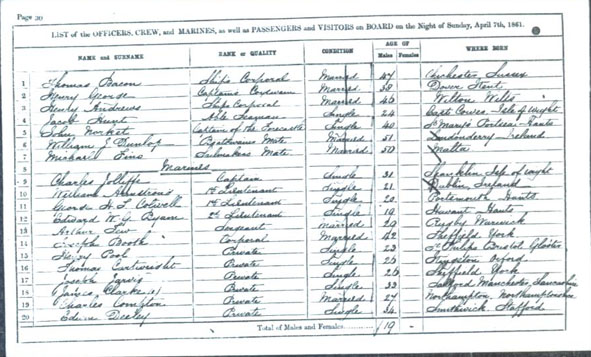 Page 30
LIST of the OFFICERS, CREW, and MARINES, as well as PASSENGERS and VISITORS on BOARD on the Night of Sunday, April 7th, 1861.
NAME and SURNAME RANK or QUALITY CONDITION AGE OF Males Females WHERE BORN
1 Thomas Bacon Ships Corporal Married 47 Chichester, Sussex
2 Henry George Captains Coxswain Married 38 Dover Kent
3 Henry Andrews Ships Corporal Married 40 Wilton Wilts
4 Jacob Able Seaman Single 24 East Cowes Isle of Wight
5 John Captain of the Forecastle Single 40 St Marys Portsea Hants
6 William J Dunlop Mate Married 51 Londonderry Ireland
7 Sailmakers Mate Married 50 Malta
8 Marines
9 Charles Jolliffe Captain Single 31 Isle of Wight
10 William 1st Lieutenant Single 21 Dublin, Ireland
11 George H. T. Colwell 1st Lieutenant Single 20 Portsmouth Hants
12 Edward W. G. Byam 2d Lieutenant Single 19 Havant Hants
13 Arthur Sergeant Married 29 Rugby Warwick
14 Joseph Booth Corporal Married 42 Sheffield York
15 Pool Private Single 23 St Philips Bristol Gloster
16 Thomas Cartwright Private Single 20 Oxford
17 Joseph Jarvis Private Single 20 Sheffield York
18 James Clarke Private Single 33 Salford Manchester, Lancashire
19 Charles Compton Private Married 27 Northampton Northamptonshire
20 Edwin Deeley Private Single 34 Smethwick Stafford
Total of Males and Females 19